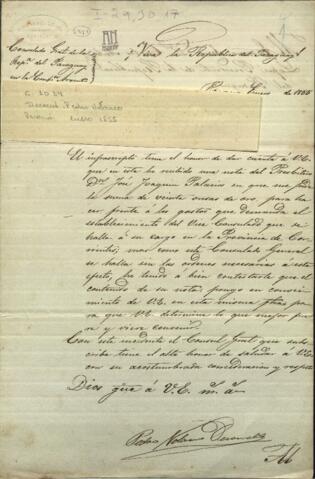 I-29,30,17
Consulado Gral. de la
Repca. del Paraguay
en la Confn. Argent.
¡Viva la República del Paraguay!
Paraná Enero de 1855
Paraná enero 1855
El infrascripto tiene el honor de dar cuenta á V.E.
que en esta ha recibido una nota del Presbítero
Dn. José Joaquin Palacios en que me pide
la suma de veinte onzas de oro para ha
cer frente á los gastos que demanda el
establecimiento del Vice Consulado que se
halla á su cargo en la Provincia de Cor
rientes; mas como este Consulado General
se halla sin las ordenes necesarias á este
efecto, ha tenido á bien contestarle que el
contenido de su nota, pongo en conoci
miento de V.E. en esta misma fha pa
ra que V.E. determine lo que mejor pare
sca y viere convenir
Con este incidente el Consul Gral que subs
cribe tiene el alto honor de saludar á V.E.
con su acostumbrada consideracion y respeto
Dios gue á V.E. m. a.
Pedro Nolasco Decoud
Al